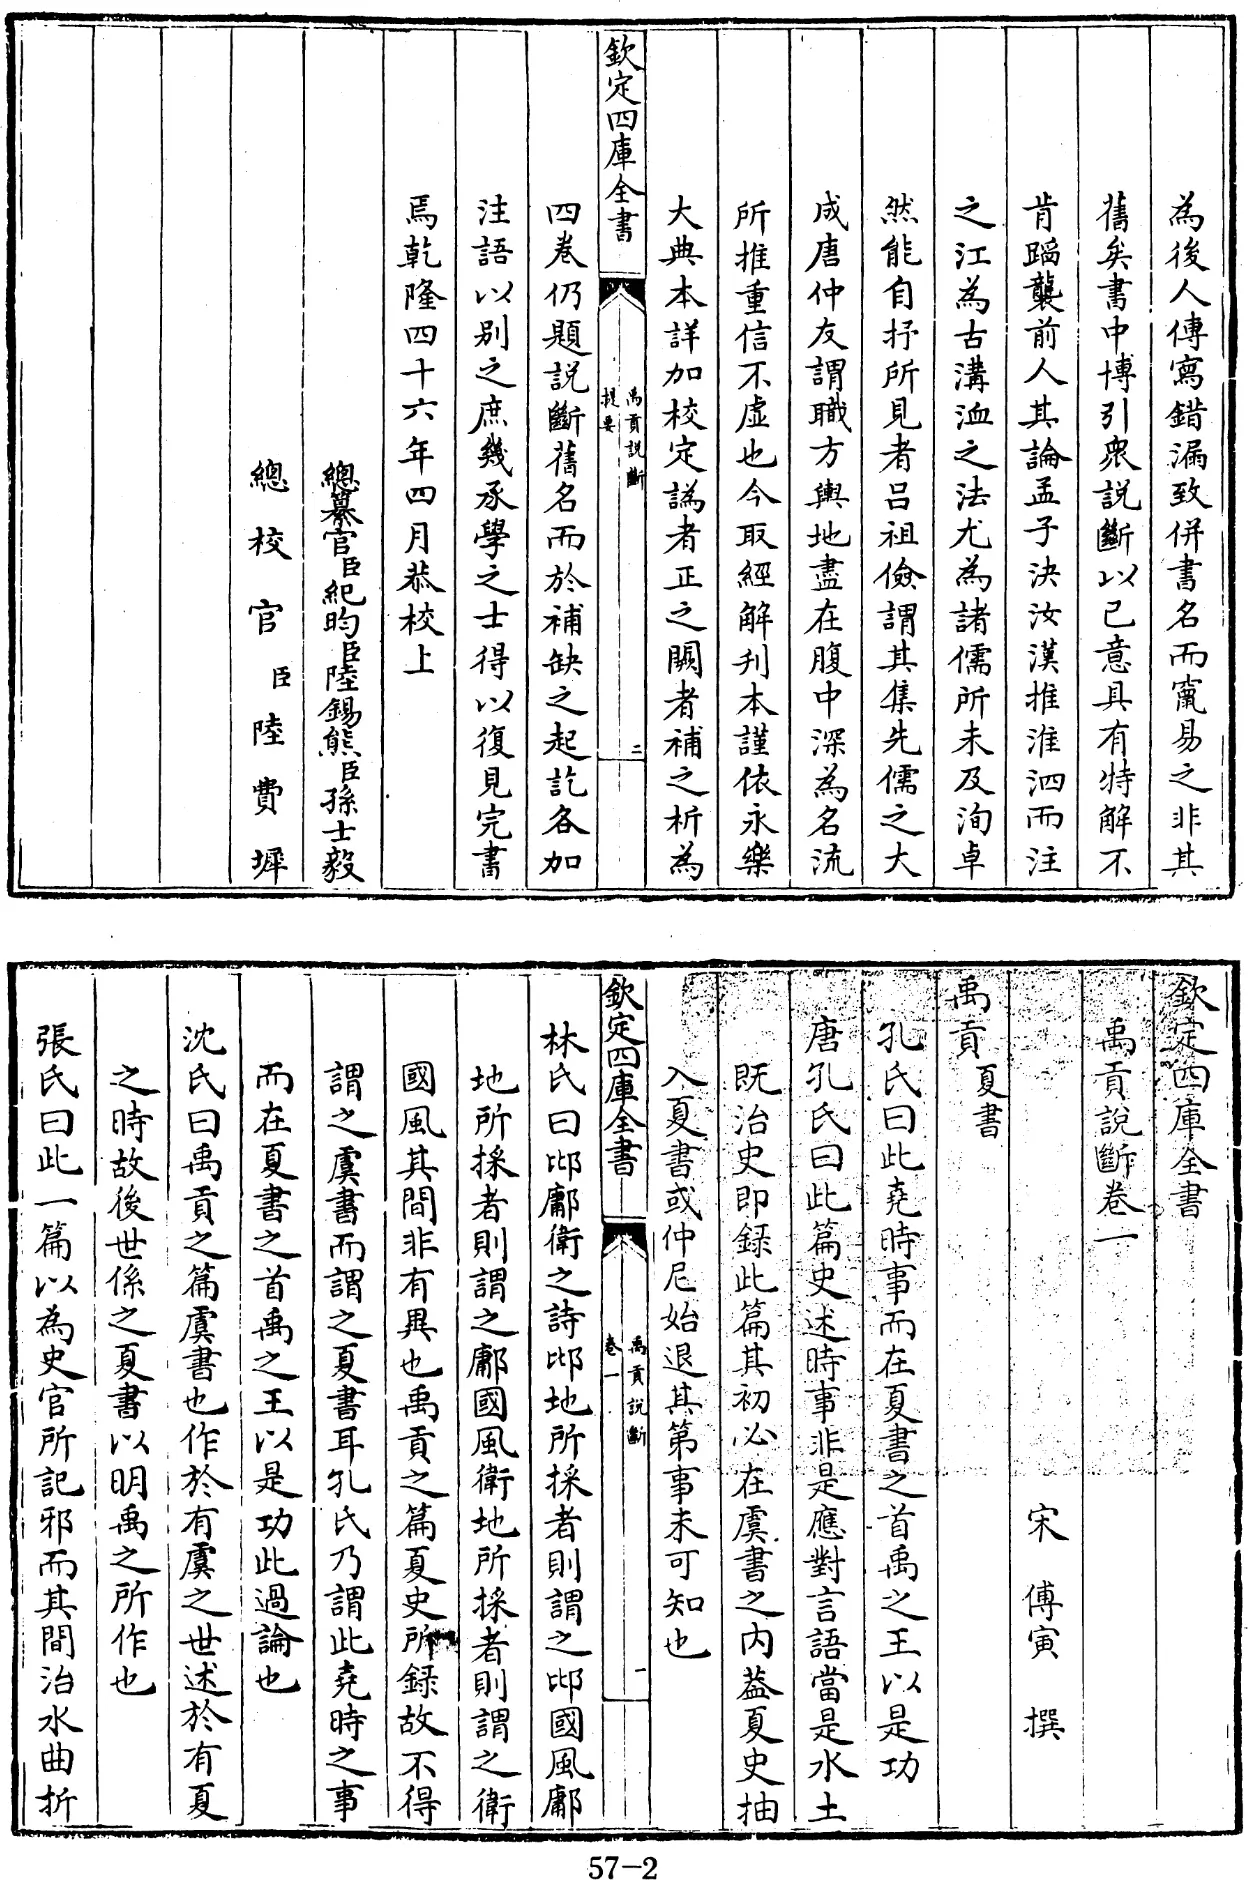 為後人傳寫錯漏致併書名而竄易之非其
舊矣書中博引衆説斷以己意具有特解不
肯蹈襲前人其論孟子決汝漢推淮泗而注
之江為古溝洫之法尤為諸儒所未及洵卓
然能自抒所見者呂祖儉謂其集先儒之大
成唐仲友謂職方輿地盡在腹中深為名流
所推重信不虛也今取經解刋本謹依永樂
大典本詳加校定譌者正之闕者補之析為
欽定四庫全書
禹貢説斷
提要
二
四卷仍題説斷舊名而於補缺之起訖各加
注語以别之庶幾承學之士得以復見完書
焉乾隆四十六年四月恭校上
總纂官臣紀昀臣陸錫熊臣孫士毅
總校官臣陸費墀
欽定四庫全書
禹貢説斷卷一
宋 傅寅 撰
禹貢 夏書
孔氏曰此堯時事而在夏書之首禹之王以是功
唐孔氏曰此篇史述時事非是應對言語當是水土
既治史即録此篇其初必在虞書之内葢夏史抽
入夏書或仲尼始退其第事未可知也
欽定四庫全書
禹貢説斷
卷一
一
林氏曰邶鄘衛之詩邶地所採者則謂之邶國風鄘
地所採者則謂之鄘國風衛地所採者則謂之衛
國風其間非有異也禹貢之篇夏史所録故不得
謂之虞書而謂之夏書耳孔氏乃謂此堯時之事
而在夏書之首禹之王以是功此過論也
沈氏曰禹貢之篇虞書也作於有虞之世述於有夏
之時故後世係之夏書以明禹之所作也
張氏曰此一篇以為史官所記邪而其間治水曲折
57-2